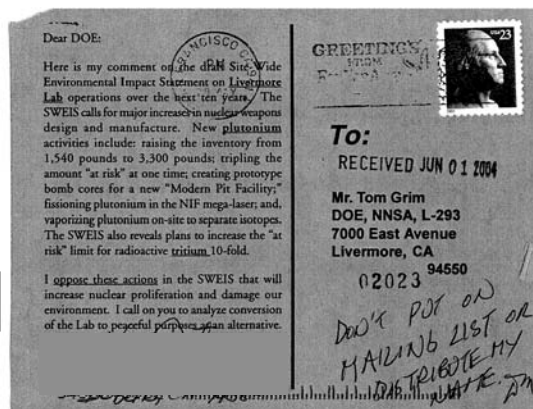 Dear DOE:
Here is my comment on the draft Site-Wide
Environmental Impact Statement on Livermore
Lab operations over the next ten years. The
SWEIS calls for major increases in nuclear weapons
design and manufacture. New plutonium
activities include: raising the inventory from
1,540 pounds to 3,300 pounds; tripling the
amount "at risk" at one time; creating prototype
bomb cores for a new "Modern Pit Facility;"
fissioning plutonium in the NIF mega-laser; and,
vaporizing plutonium on-site to separate isotopes.
The SWEIS also reveals plans to increase the "at
risk" limit for radioactive tritium 10-fold.
I oppose these actions in the SWEIS that will
increase nuclear proliferation and damage our
environment. I call on you to analyze conversion
of the Lab to peaceful purposes as an alternative.
FRANCISCO
PM
GREETINGS
FROM
USA 23
To:
RECEIVED JUN 01 2004
Mr. Tom Grim
DOE, NNSA, L-293
7000 East Avenue
Livermore, CA
94550
02023
DON'T PUT ON
MAILING LIST OR
DISTRIBUTE MY
NAME.